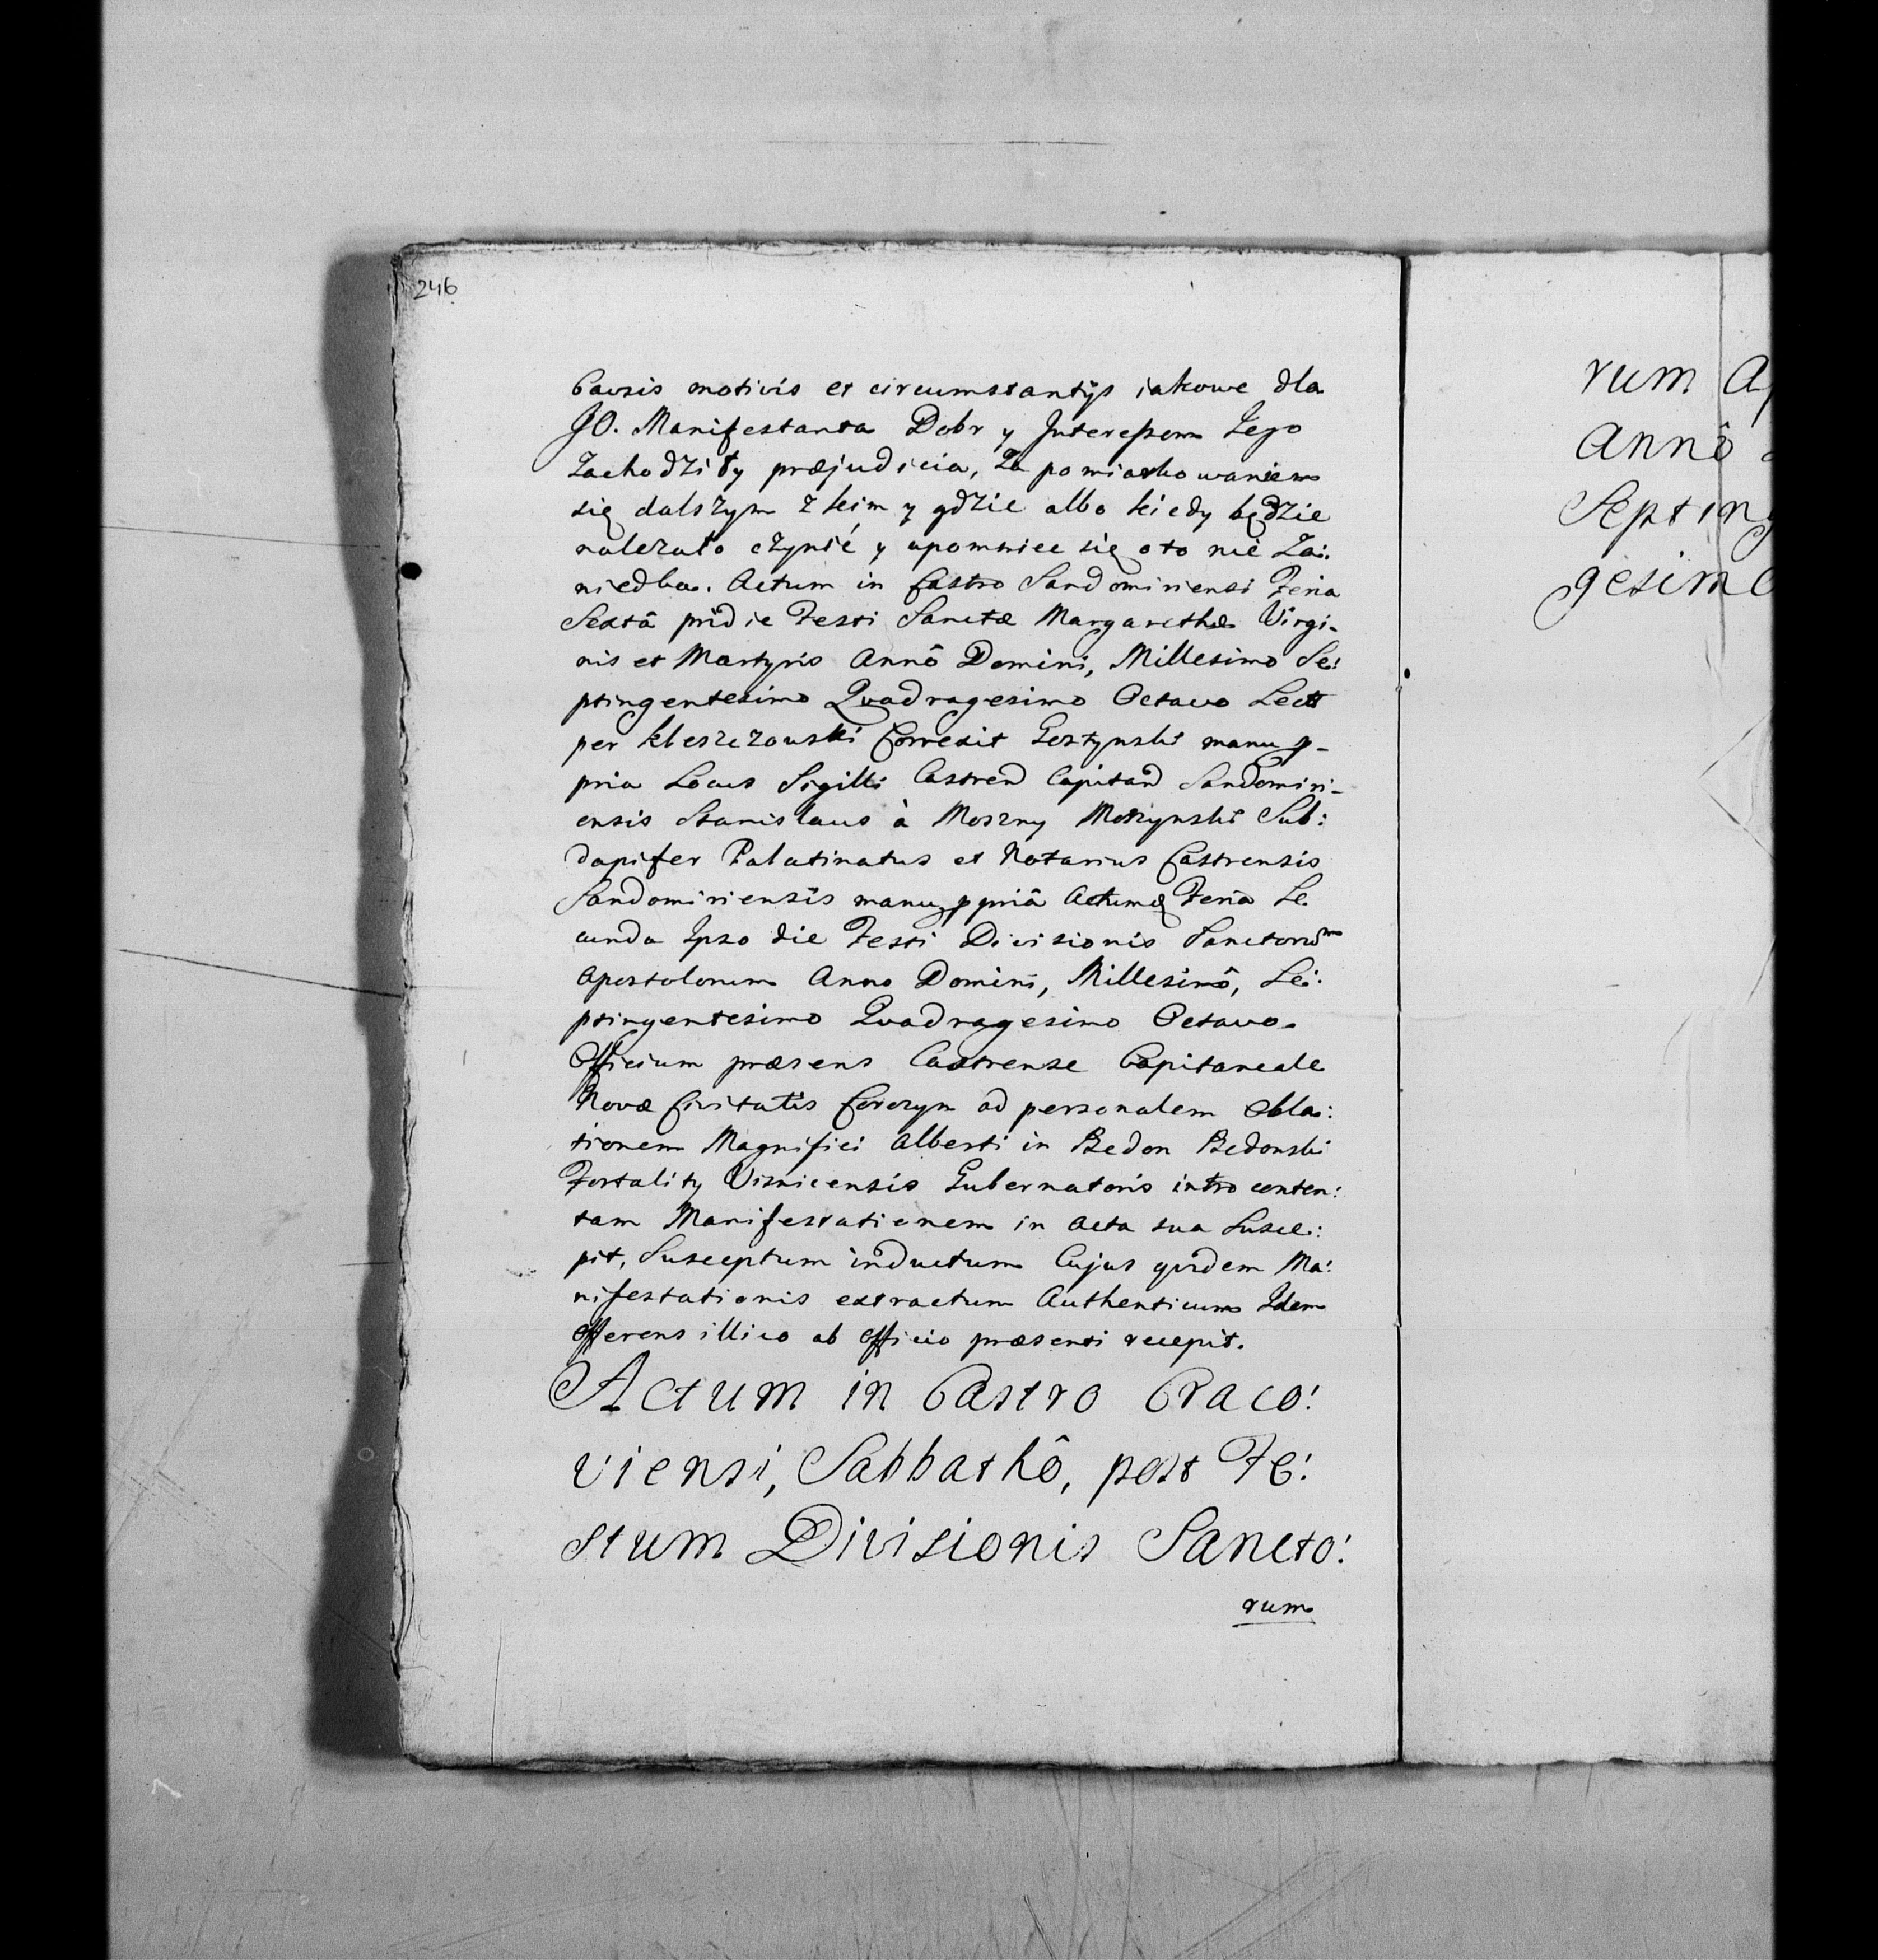 246
Causis motivis et circumstantijs iakowe dla
JO. Manifestanta Dobr y Interessom Jego
Zachodziły præjudicia, Za pomiarkowaniem
się dalszym z kim y gdzie albo kiedy będzie
należało czynić y upomniec się oto nie Za:
niedba. Actum in Castro Sandomiriensi Feria
Sextâ pridie Festi Sanctæ Margarethæ Virgi-
nis et Martyris Annô Domini, Millesimo Se:
ptingentesimo Quadragesimo Octavo Lect
per Kleszczowski Correxit Gostynski manu p-
pria Locus Sigilli Castren Capitan Sandomiri-
ensis Stanislaus à Moszny Moszynski Sub:
dapifer Palatinatus et Notarius Castrensis
Sandomiriensis manu ppriâ Actumq Feria Se.
cunda Ipso die Festi Divisionis Sanctorum
Apostolorum Anno Domini, Millesimô, Se:
ptingentesimo Quadragesimo Octavo.
Officium præsens Castrense Capitaneale
Novæ Civitatis Corczyn ad personalem Obla:
tionem Magnifici Alberti in Bedon Bedonski
Fortality Visnicensis Gubernatoris intro conten:
tam Manifestationem in Acta sua Susce:
pit, Susceptum inductum Cujus quidem Ma:
nifestationis extractum Authenticum Idem
Offerens illico ab Officio præsenti recepit.
Actum in Castro Craco:
viensi, Sabbathô, post Fe:
stum Divisionis Sancto:
rum
rum Ap
Annô
Septing
gesimo